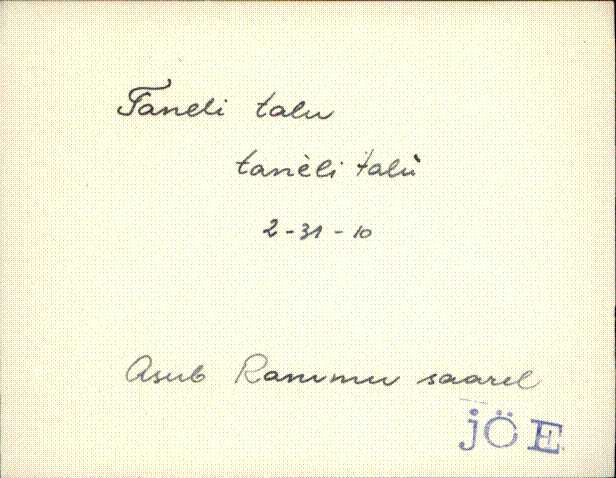 Taneli talu
tanèli talù
2-31-10
Asub Rammu saarel
JÕE